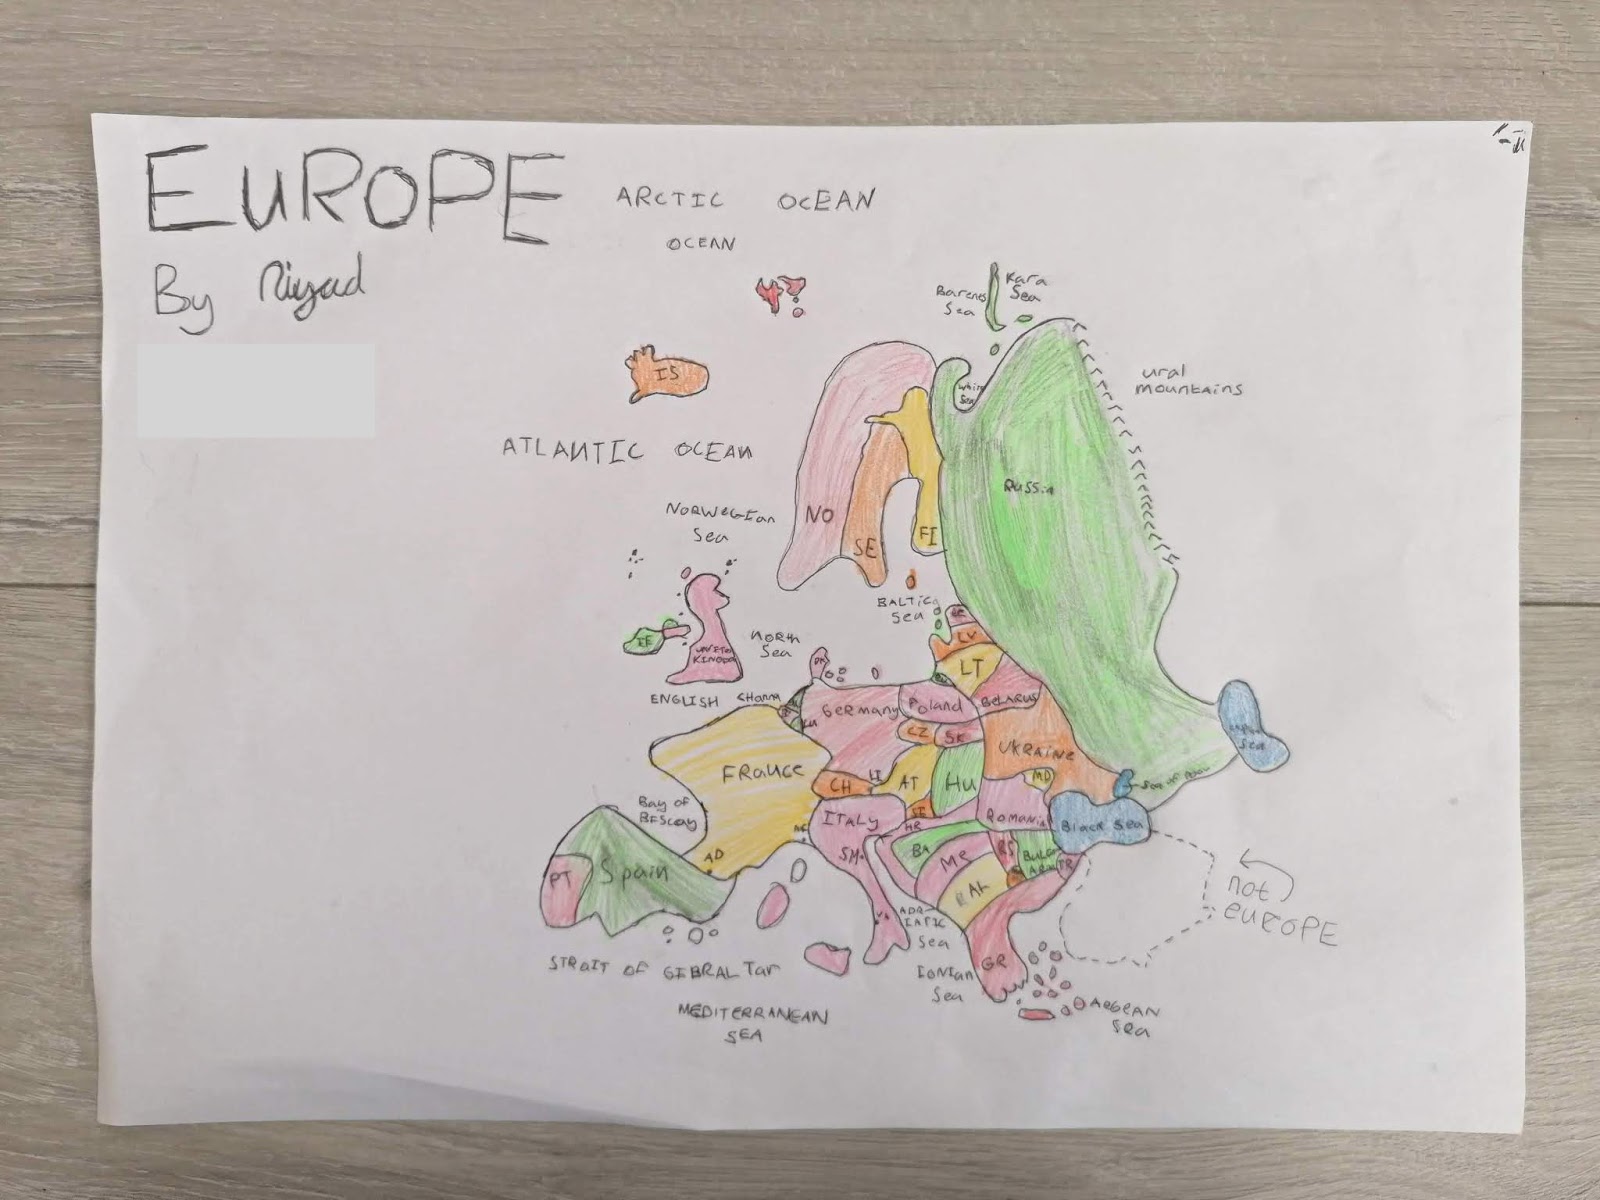 EUROPE
By Riyad
ARCTIC OCEAN
OCEAN
Kara
Sea
Sea
IS
ural
mountains
Sea
ATLANTIC OCEAN
Russia
NORWEGIAN
Sea
NO
SE
FI
BALTIC
Sea
IE
UNITED
KINGDO
NORTH
Sea
LV
LT
DK
ENGLISH
GERMANY
Poland
BELARUS
CZ
SK
UKRAINE
Sea
FRANCE
CH
LI
AT
HU
MD
Sea of
Bay of
BISCAY
ITALY
HR
Romania
Black Sea
SM
BA
ME
RS
TR
AD
AL
PT
Spain
not
EUROPE
ADR-
IATIC
Sea
STRAIT OF GIBRALTAR
IONIAN
Sea
GR
MEDITERRANEAN
SEA
AEGEAN
Sea